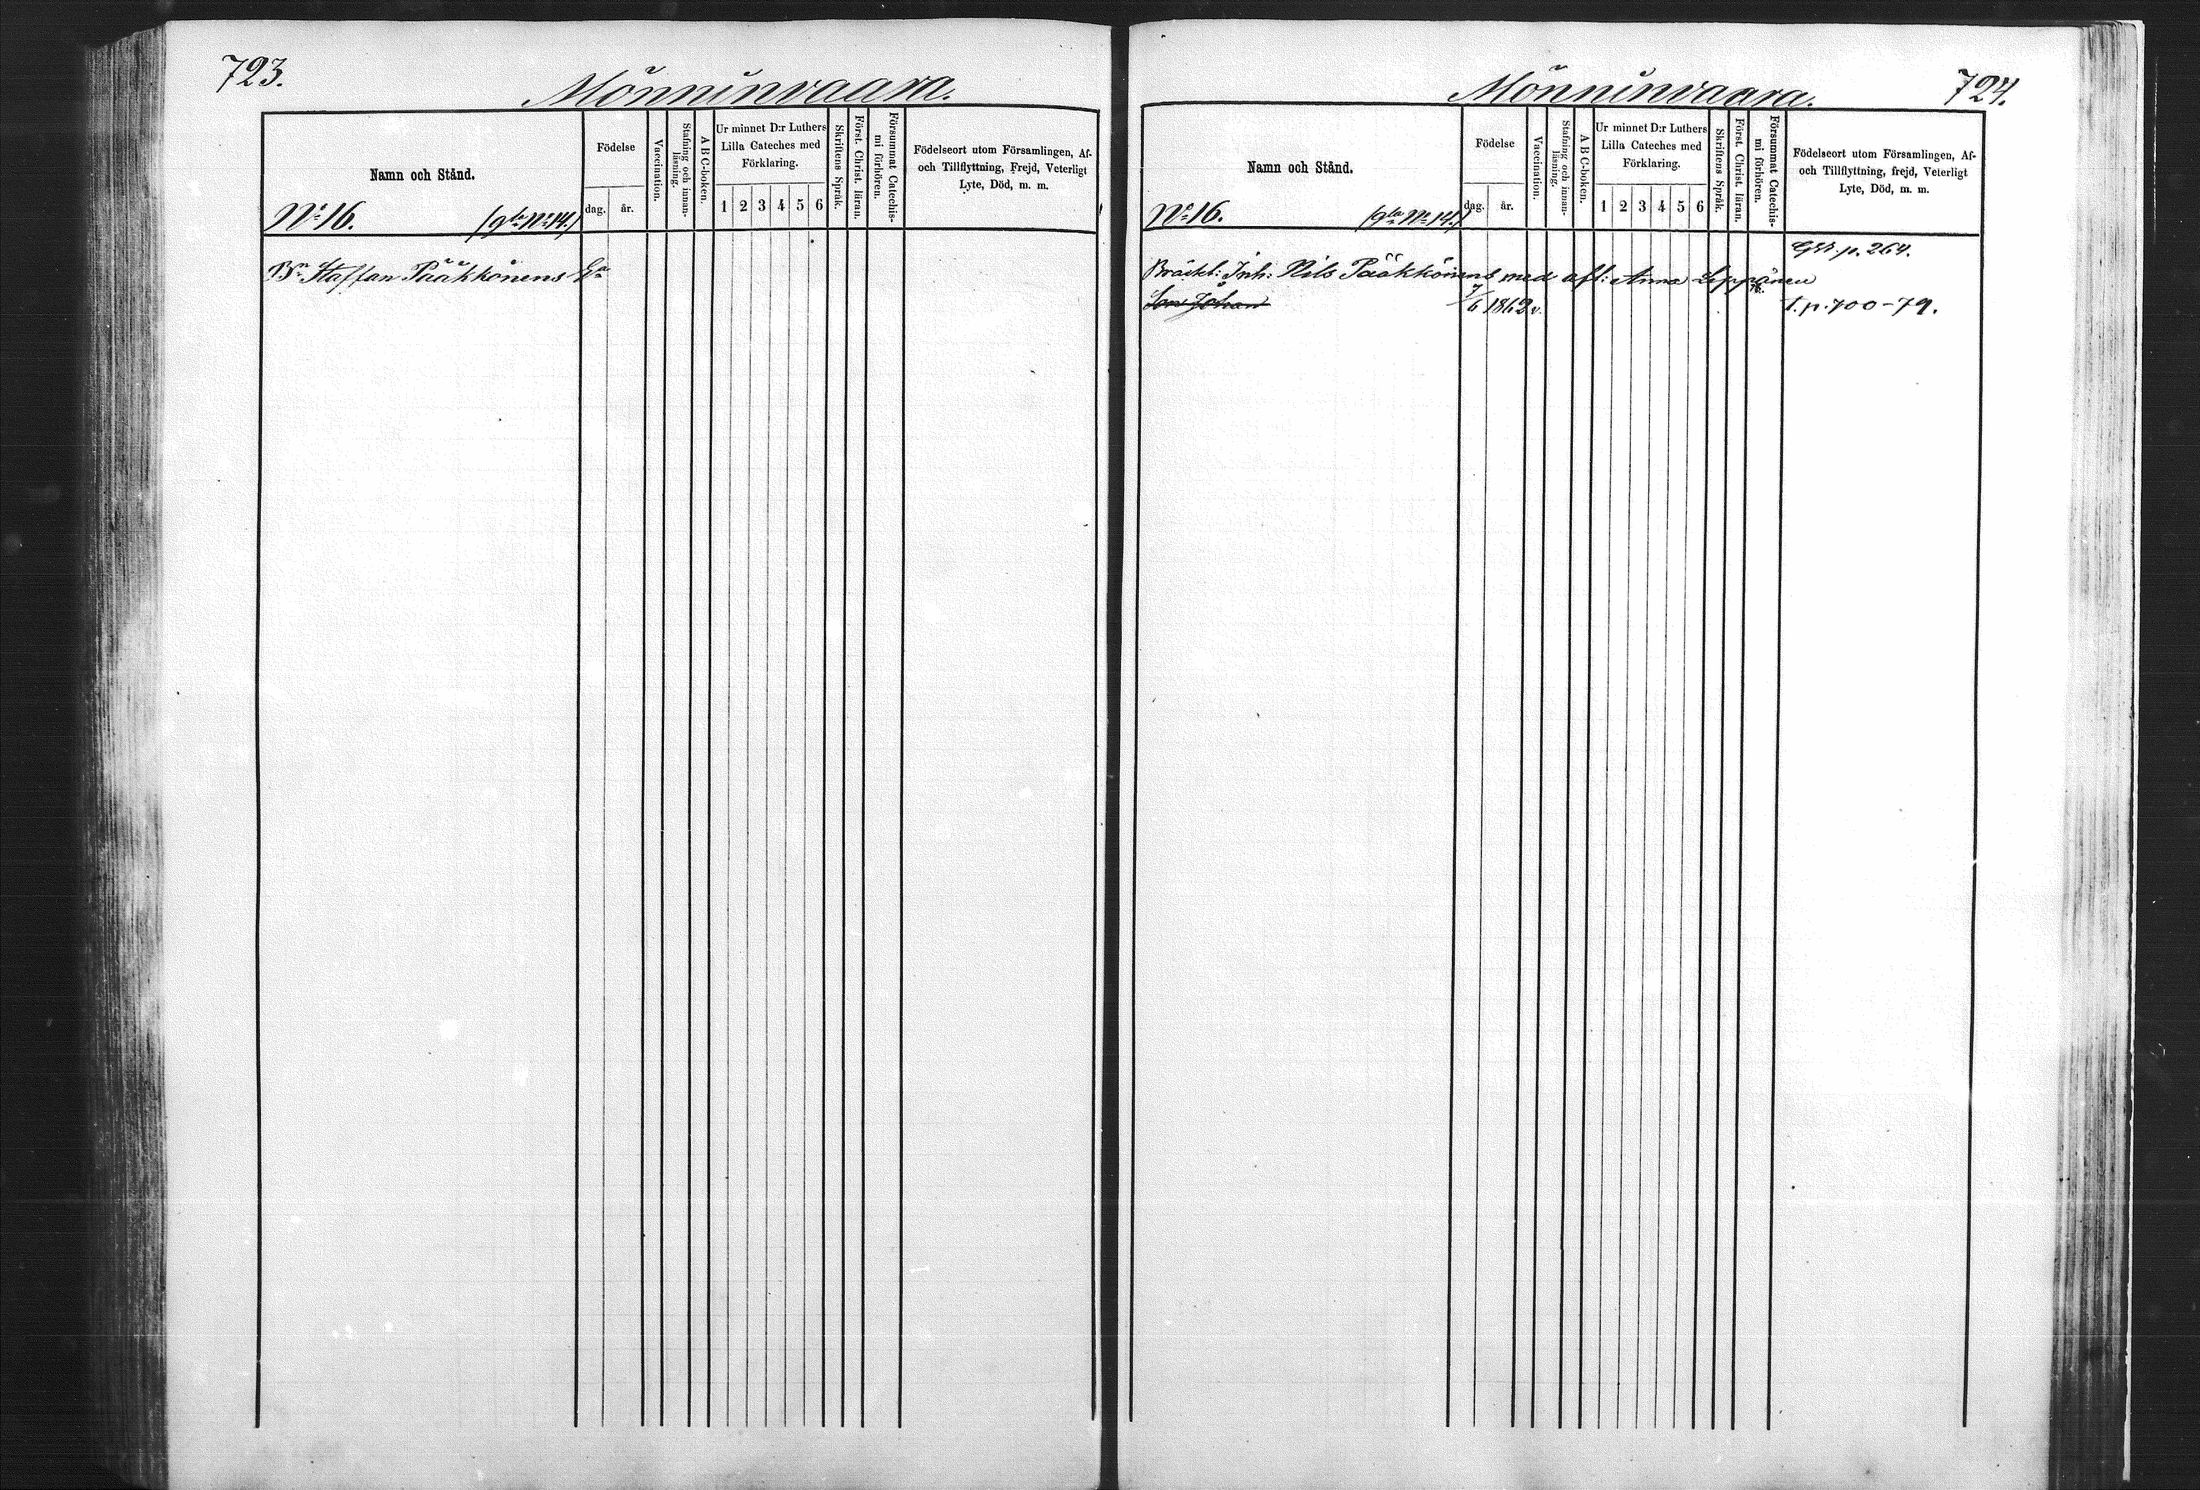 723.
Mönninvaara.
Namn och Stånd.
Födelse
dag.
år.
Vaccination.
Stafning och innan-
läsning.
A B C-boken.
Ur minnet D:r Luthers
Lilla Cateches med
Förklaring.
1 2 3 4 5 6
Skriftens Språk.
Först. Christ. läran.
Försummat Catechis-
mi förhören.
Födelseort utom Församlingen, Af-
och Tillflyttning, Frejd, Veterligt
Lyte, Död, m. m.
No 16. (gla No 14.)
Bn Staffan Pääkkönens Ea
Mönninvaara.
724.
Namn och Stånd.
Födelse
dag.
år.
Vaccination.
Stafning och innan-
läsning.
A B C-boken.
Ur minnet D:r Luthers
Lilla Cateches med
Förklaring.
1 2 3 4 5 6
Skriftens Språk.
Först. Christ. läran.
Försummat Catechis-
mi förhören.
Födelseort utom Församlingen, Af-
och Tillflyttning, frejd, Veterligt
Lyte, Död, m. m.
No 16. (gla No 14.)
p. 264.
Bräckl: Inh: Nils Pääkkönens med afl: Anna Leppänen
Son Johan 7/6 1862 v. t. p. 700-79.